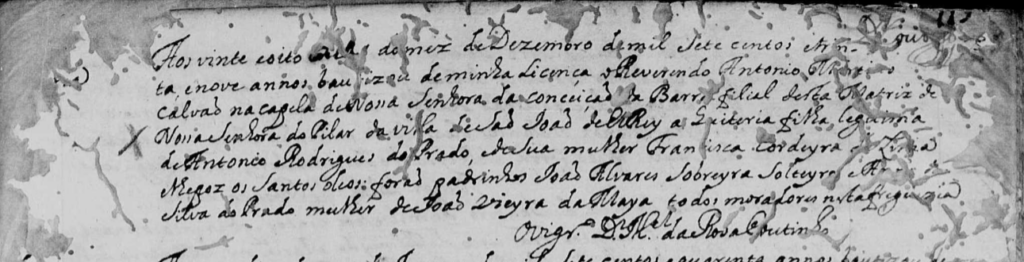 113
Aos vinte eoito dias do mez de Dezembro de mil sete centos etrin-
ta enove annos bautizou deminha Licença o Reverendo Antonio
Calvaõ na capela de Nossa Senhora da conceicaõ da Barra filial desta Matriz de
Nossa Senhora do Pilar da villa de Saõ Joaõ del Rey a Quiteria filha legitima
de Antonio Rodrigues do Prado, edesua mulher Francisca Cordeyra e
os Santos oleos. foraõ padrinhos Joaõ Alvares Sobreyra Solteyro e
Silva do Prado mulher de Joaõ Vieyra da Maya todos moradores nesta freguezia
Ovigr.º D.r M.el da Rosa Coutinho
sete centos equarenta annos bautizou